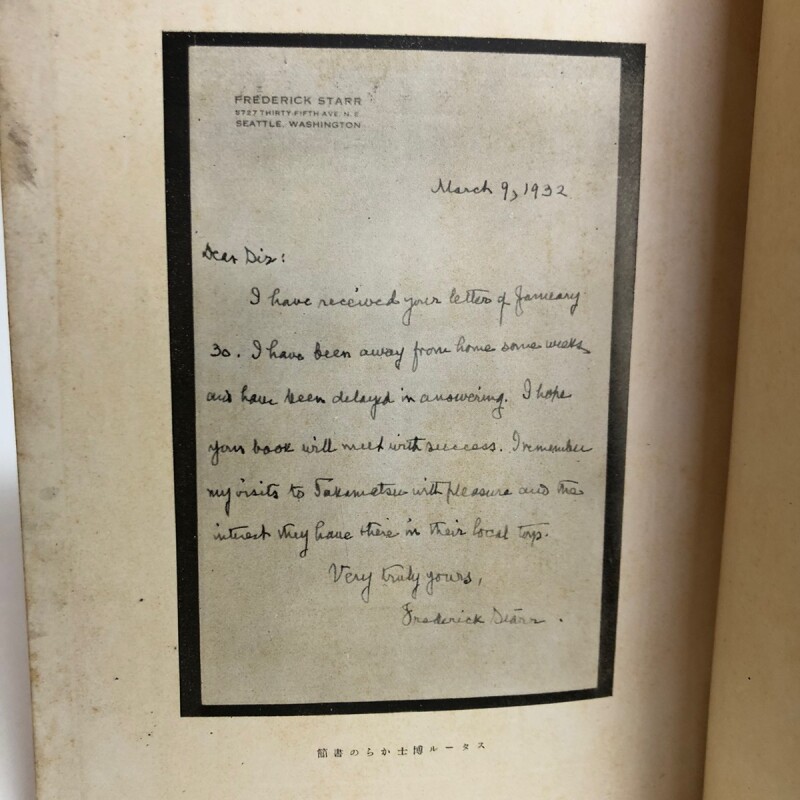 FREDERICK STARR
2727 THIRTY-FIFTH AVE. N. E.
SEATTLE, WASHINGTON
March 9, 1932
Dear Sir:
I have received your letter of January
30. I have been away from home some weeks
and have been delayed in answering. I hope
your book will meet with success. I remember
my visits to Takamatsu with pleasure and the
interest they have there in their local toys.
Very truly yours,
Frederick Starr.
簡書のらか士博ルータス